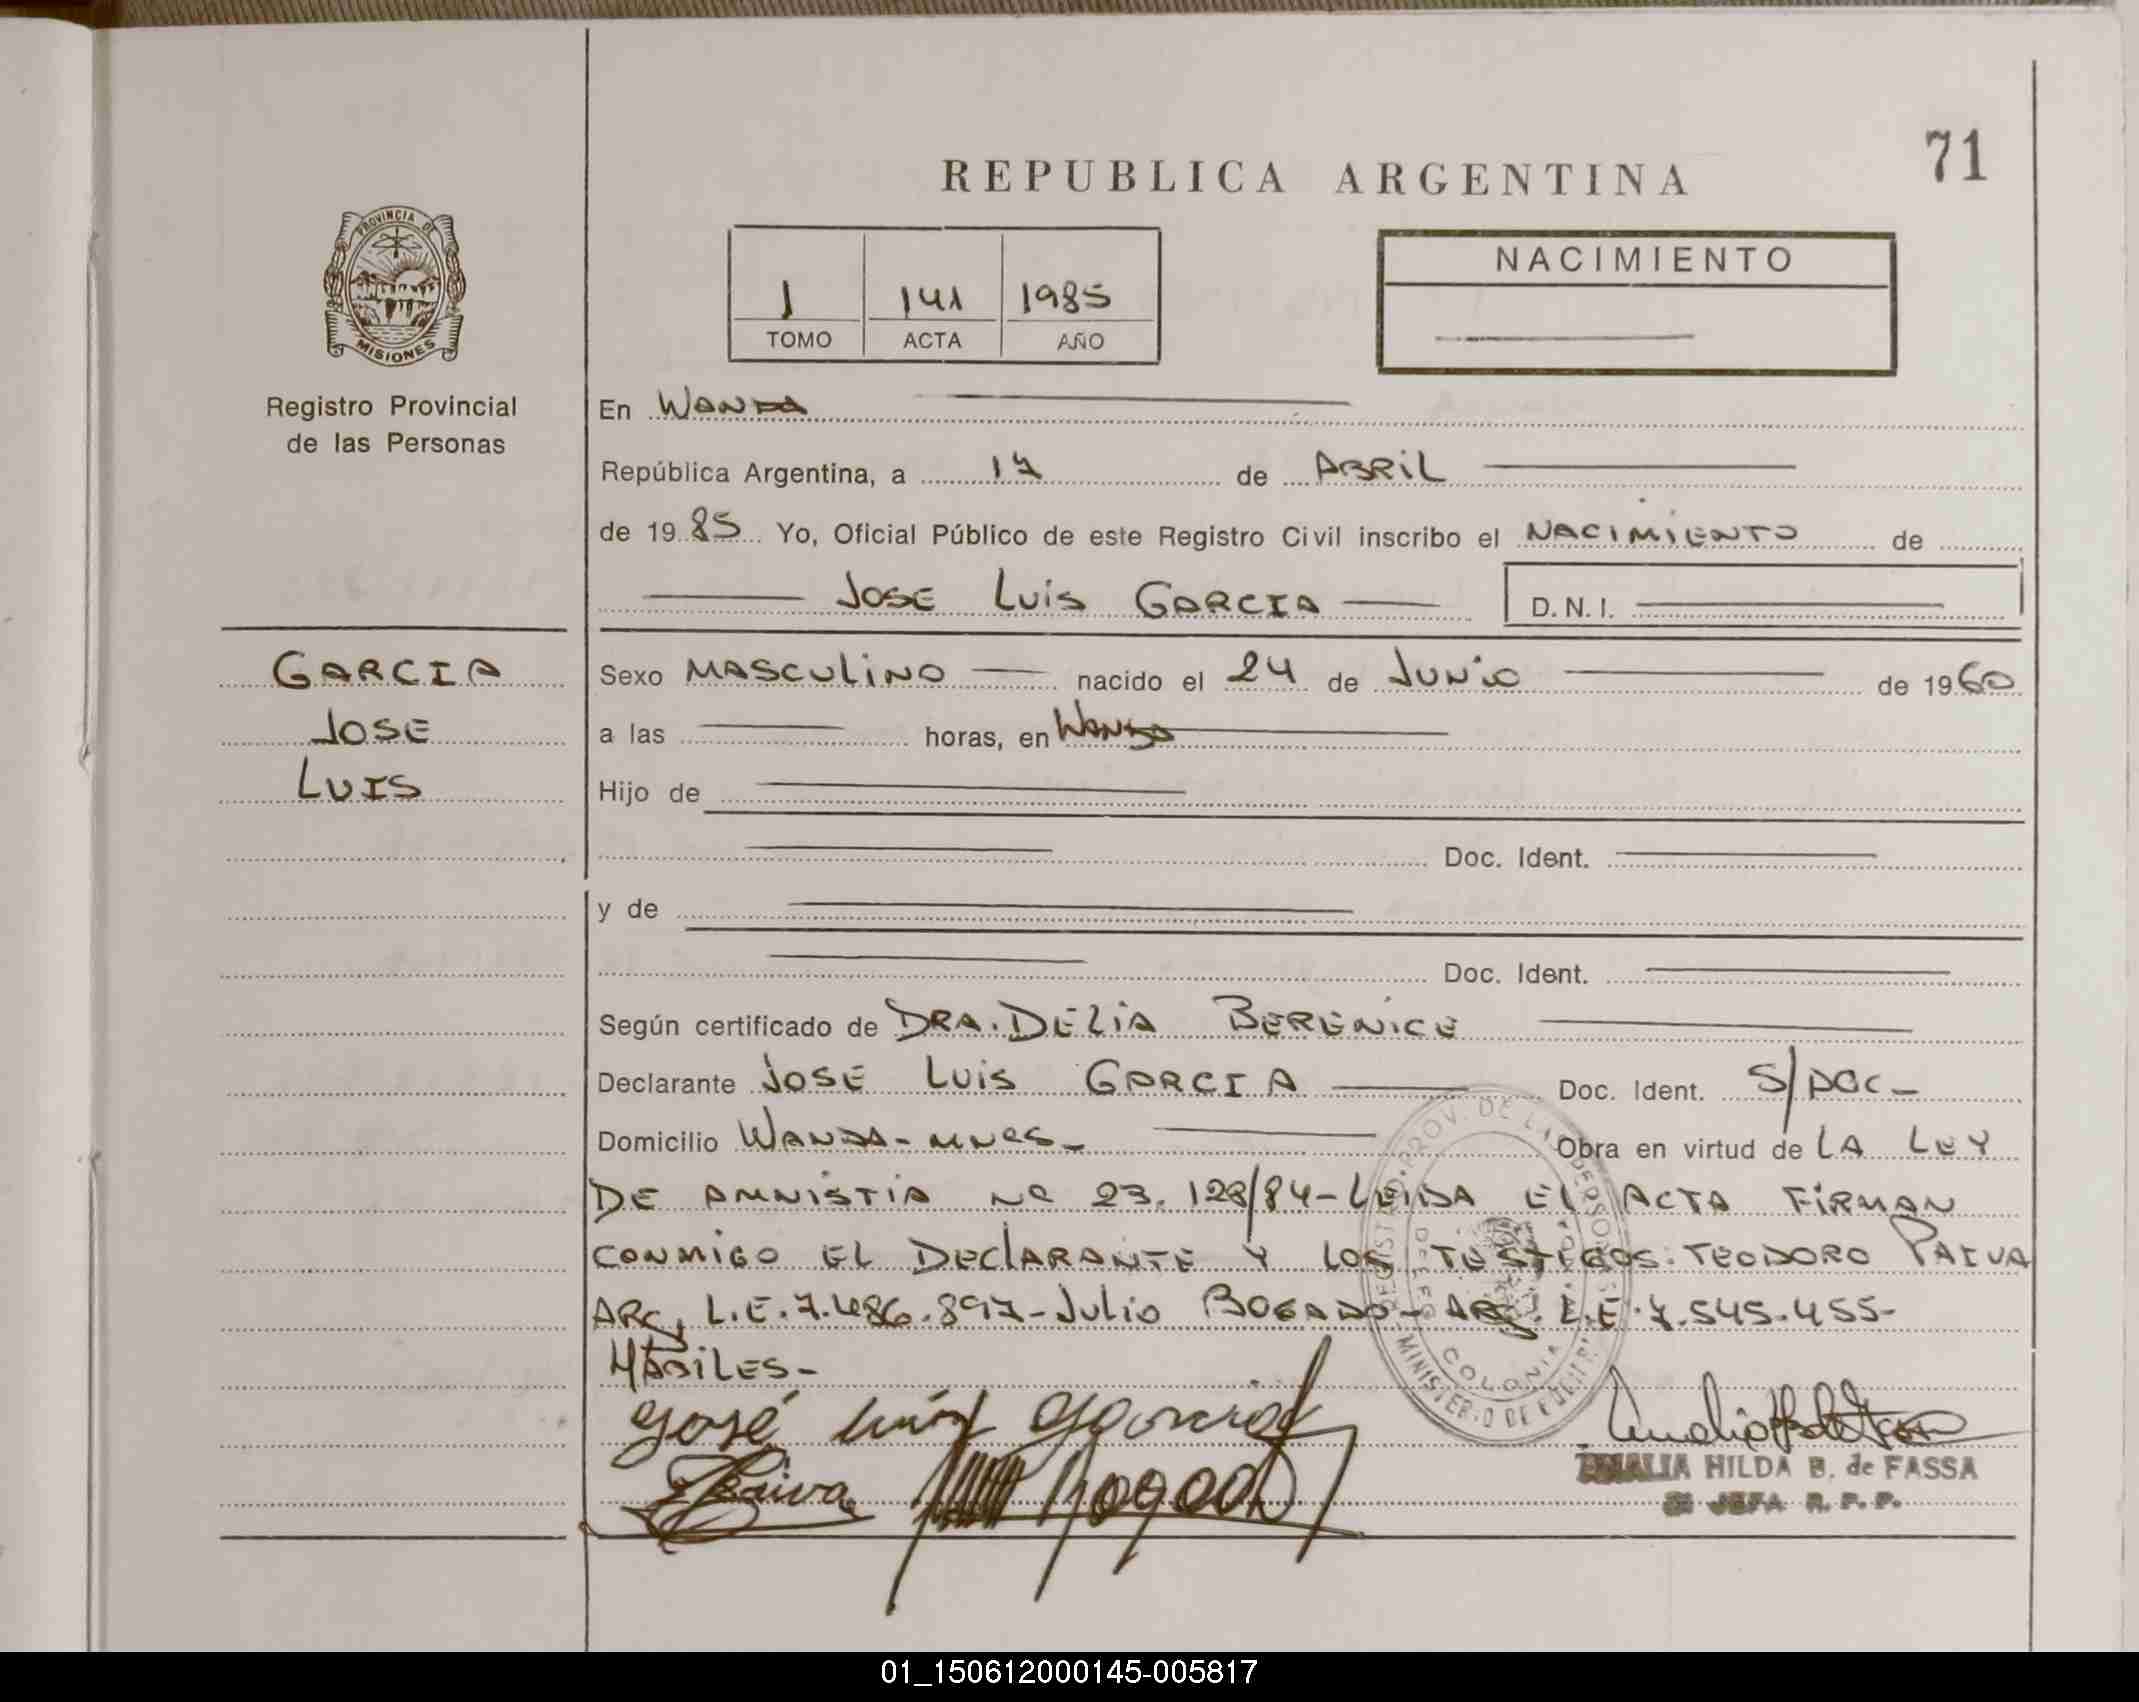 71
REPUBLICA ARGENTINA
PROVINCIA DE
MISIONES
Registro Provincial
de las Personas
1 141 1985
TOMO ACTA AÑO
NACIMIENTO
En WANDA
República Argentina, a 17 de ABRIL
de 1985 Yo, Oficial Público de este Registro Civil inscribo el NACIMIENTO de
JOSE LUIS GARCIA D.N.I.
GARCIA
JOSE
LUIS
Sexo MASCULINO nacido el 24 de JUNIO de 1960
a las horas, en WANDA
Hijo de
Doc. Ident.
y de
Doc. Ident.
Según certificado de DRA. DELIA BERENICE
Declarante JOSE LUIS GARCIA Doc. Ident. S/DOC-
Domicilio WANDA-MNES- Obra en virtud de LA LEY
DE AMNISTIA Nº 23.128/84-LEIDA EL ACTA FIRMAN
CONMIGO EL DECLARANTE Y LOS TESTIGOS: TEODORO PAIVA
ARG. L.E.7.486.897-JULIO BOGADO-ARG. L.E.7.545.455-
HABILES-
José Luis Garcia
Paiva Bogado
AMALIA HILDA B. de FASSA
JEFA R. P. P.
PROV. DE LAS PERSONAS
COLONIA
MINISTERIO DE
01_150612000145-005817